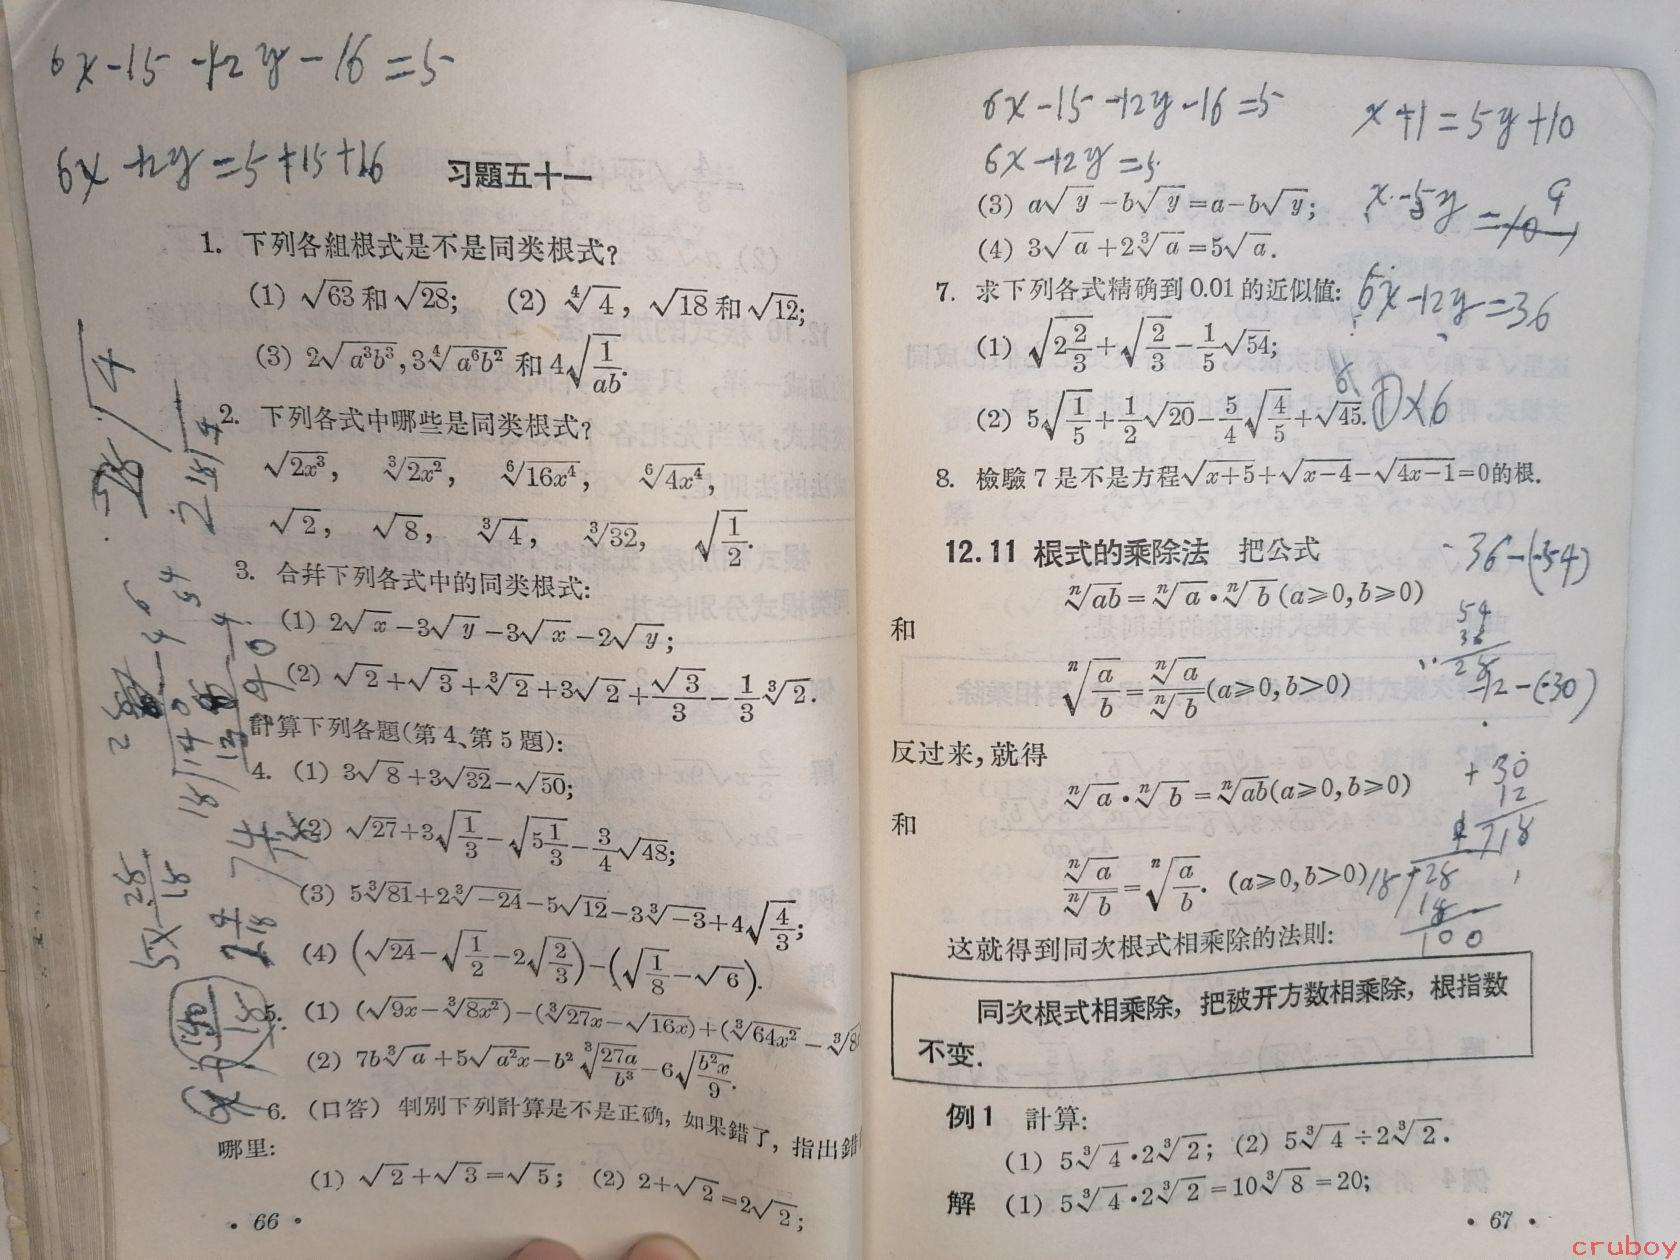 6x-15-12y-16=5
6x-12y=5+15+16
习題五十一
1. 下列各組根式是不是同类根式?
(1) √63 和 √28; (2) ∜4, √18 和 √12;
(3) 2√(a³b³), 3∜(a⁶b²) 和 4√(1/ab).
2. 下列各式中哪些是同类根式?
√(2x³), ∛(2x²), ⁶√(16x⁴), ⁶√(4x⁴),
√2, √8, ∛4, ∛32, √(1/2).
3. 合幷下列各式中的同类根式:
(1) 2√x-3√y-3√x-2√y;
(2) √2+√3+∛2+3√2+√3/3-1/3∛2.
計算下列各題(第4、第5題):
4. (1) 3√8+3√32-√50;
(2) √27+3√(1/3)-√(5 1/3)-3/4√48;
(3) 5∛81+2∛-24-5√12-3∛-3+4√(4/3);
(4) (√24-√(1/2)-2√(2/3))-(√(1/8)-√6).
5. (1) (√9x-∛(8x²))-(∛27x-√16x)+(∛(64x²)-∛8
(2) 7b∛a+5√(a²x)-b²∛(27a/b³)-6√(b²x/9).
6. (口答) 判別下列計算是不是正确, 如果錯了, 指出錯
哪里:
(1) √2+√3=√5; (2) 2+√2=2√2;
• 66 •
6x-15-12y-16=5
x+1=5y+10
6x-12y=5
(3) a√y-b√y=a-b√y;
x-5y=9
(4) 3√a+2∛a=5√a.
7. 求下列各式精确到 0.01 的近似値:
6x-12y=36
(1) √(2 2/3)+√(2/3)-1/5√54;
(2) 5√(1/5)+1/2√20-5/4√(4/5)+√45.
①×6
8. 檢驗 7 是不是方程√(x+5)+√(x-4)-√(4x-1)=0的根.
12.11 根式的乘除法 把公式
36-(-54)
ⁿ√ab=ⁿ√a•ⁿ√b (a⩾0, b⩾0)
和
54
36
ⁿ√(a/b)=ⁿ√a/ⁿ√b (a⩾0, b>0)
-12-(-30)
反过来, 就得
ⁿ√a•ⁿ√b=ⁿ√ab(a⩾0, b⩾0)
+30
12
和
18
ⁿ√a/ⁿ√b=ⁿ√(a/b). (a⩾0, b>0)
18
28
18
100
这就得到同次根式相乘除的法則:
同次根式相乘除, 把被开方数相乘除, 根指数
不变.
例1 計算:
(1) 5∛4•2∛2; (2) 5∛4÷2∛2.
解 (1) 5∛4•2∛2=10∛8=20;
• 67 •
cruboy